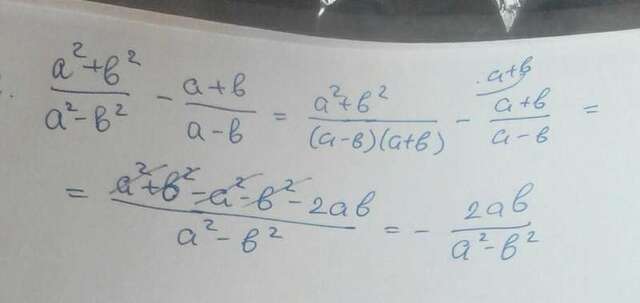 a²+b²/a²-b² - a+b/a-b = a²+b²/(a-b)(a+b) - a+b/a-b ·a+b =
= a²+b²-a²-b²-2ab/a²-b² = - 2ab/a²-b²